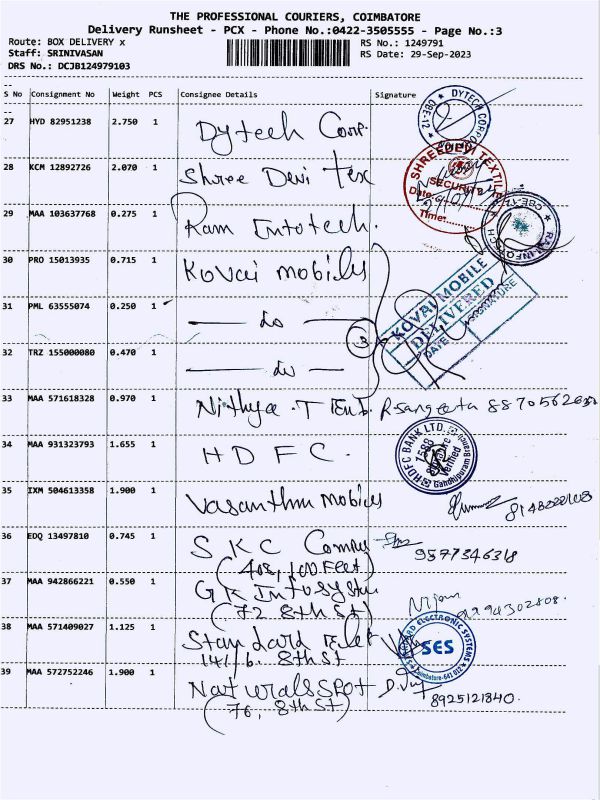 THE PROFESSIONAL COURIERS, COIMBATORE
Delivery Runsheet - PCX - Phone No.:0422-3505555 - Page No.:3
Route: BOX DELIVERY x RS No.: 1249791
Staff: SRINIVASAN RS Date: 29-Sep-2023
DRS No.: DCJB124979103
S No Consignment No Weight PCS Consignee Details Signature
27 HYD 82951238 2.750 1 Dytech Corp. DYTECH CORPO CBE-12
28 KCM 12892726 2.070 1 Shree Devi Tex SHREEDEVI TEXTILE SECURITY Date: Time:
29 MAA 103637768 0.275 1 Ram Infotech. CBE-12
30 PRO 15013935 0.715 1 Kovai mobiles KOVAI MOBILE DELIVERED DATE SIGNATURE
31 PML 63555074 0.250 1 — do — 3
32 TRZ 155000080 0.470 1 — do —
33 MAA 571618328 0.970 1 Nithya . T R Sangeetha
34 MAA 931323793 1.655 1 H D F C . HDFC BANK LTD. 1588 Gandhipuram
35 IXM 504613358 1.900 1 Vasantha mobiles
36 EDQ 13497810 0.745 1 S K C 9577346318
(408, 100 Feet)
37 MAA 942866221 0.550 1 G K Infosystem
(72 8th St)
38 MAA 571409027 1.125 1 Standard STANDARD ELECTRONIC SYSTEMS SES Coimbatore-641 012
141/6. 8th St
39 MAA 572752246 1.900 1 Naturals SPOT 8925121840.
(76, 8th St)